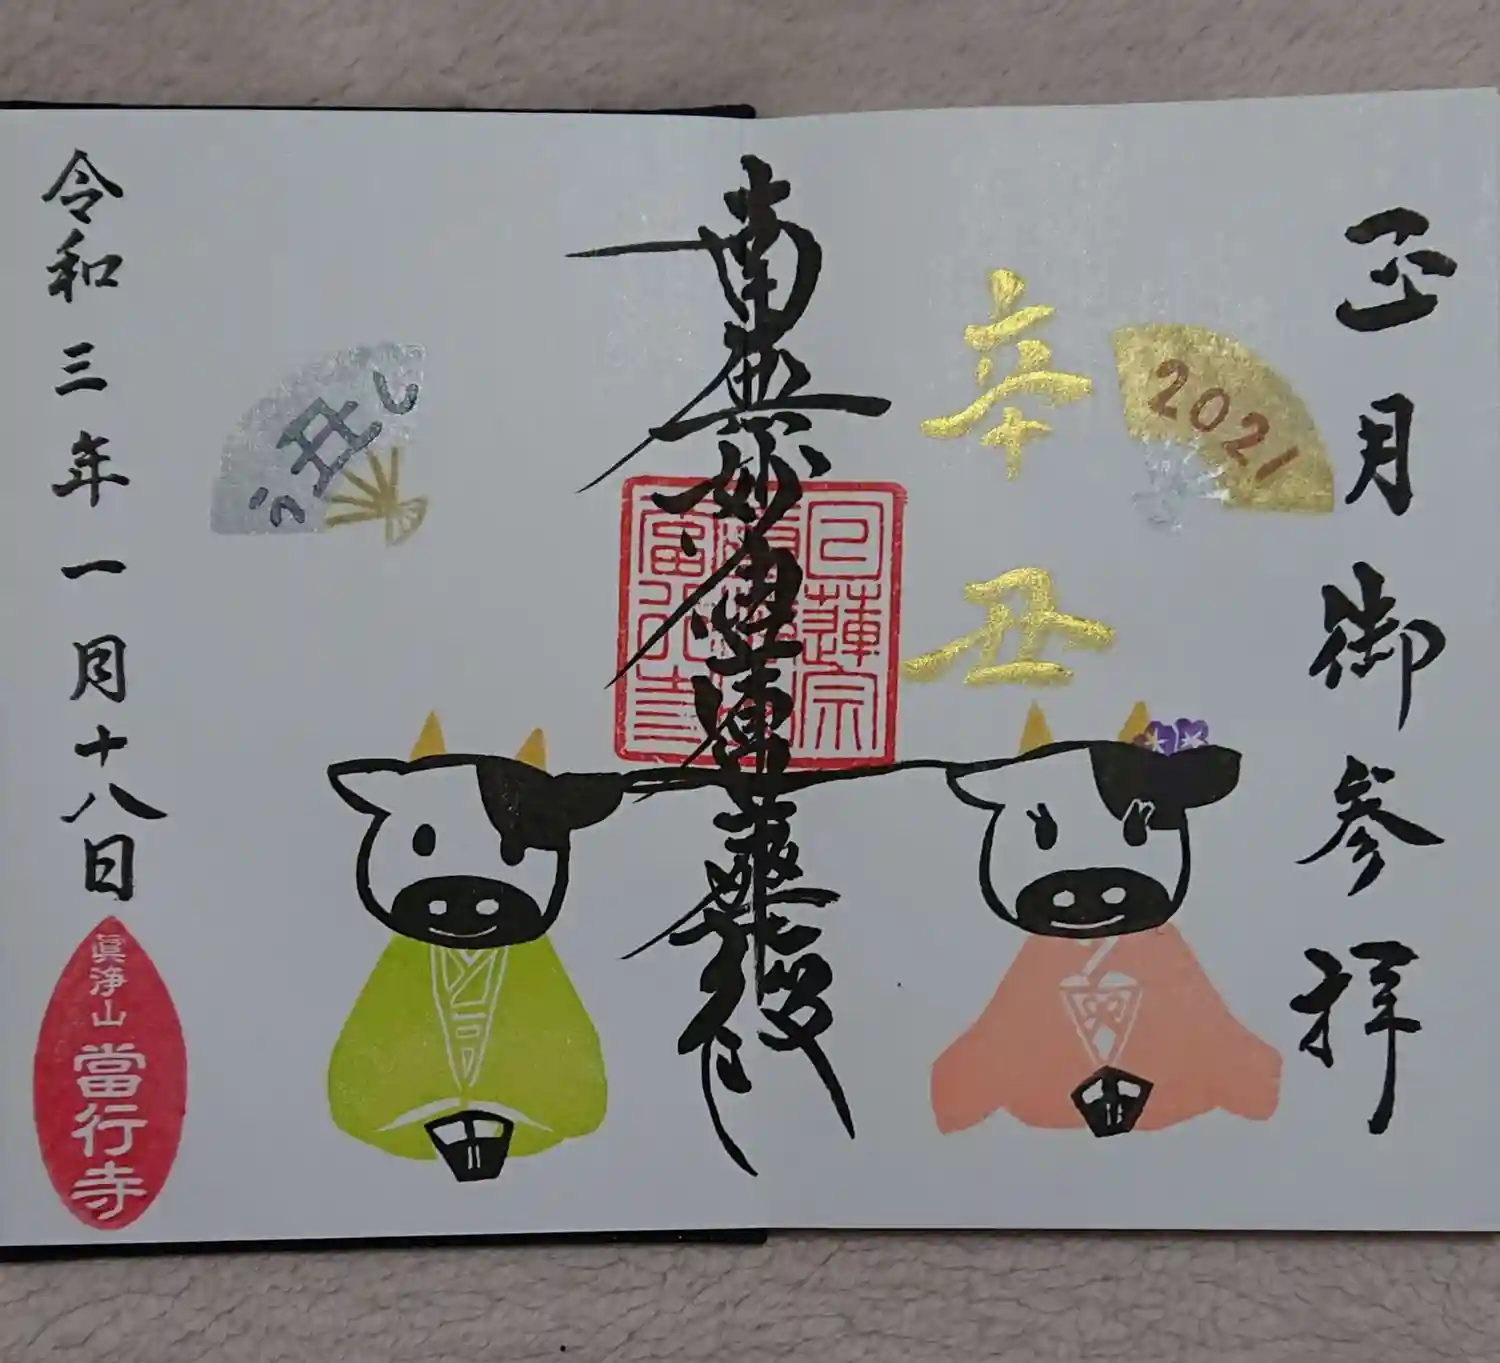 正月御参拝
2021
辛丑
南無妙法蓮華経
日蓮宗
當行寺
うし
丑
令和三年一月十八日
眞浄山
當行寺